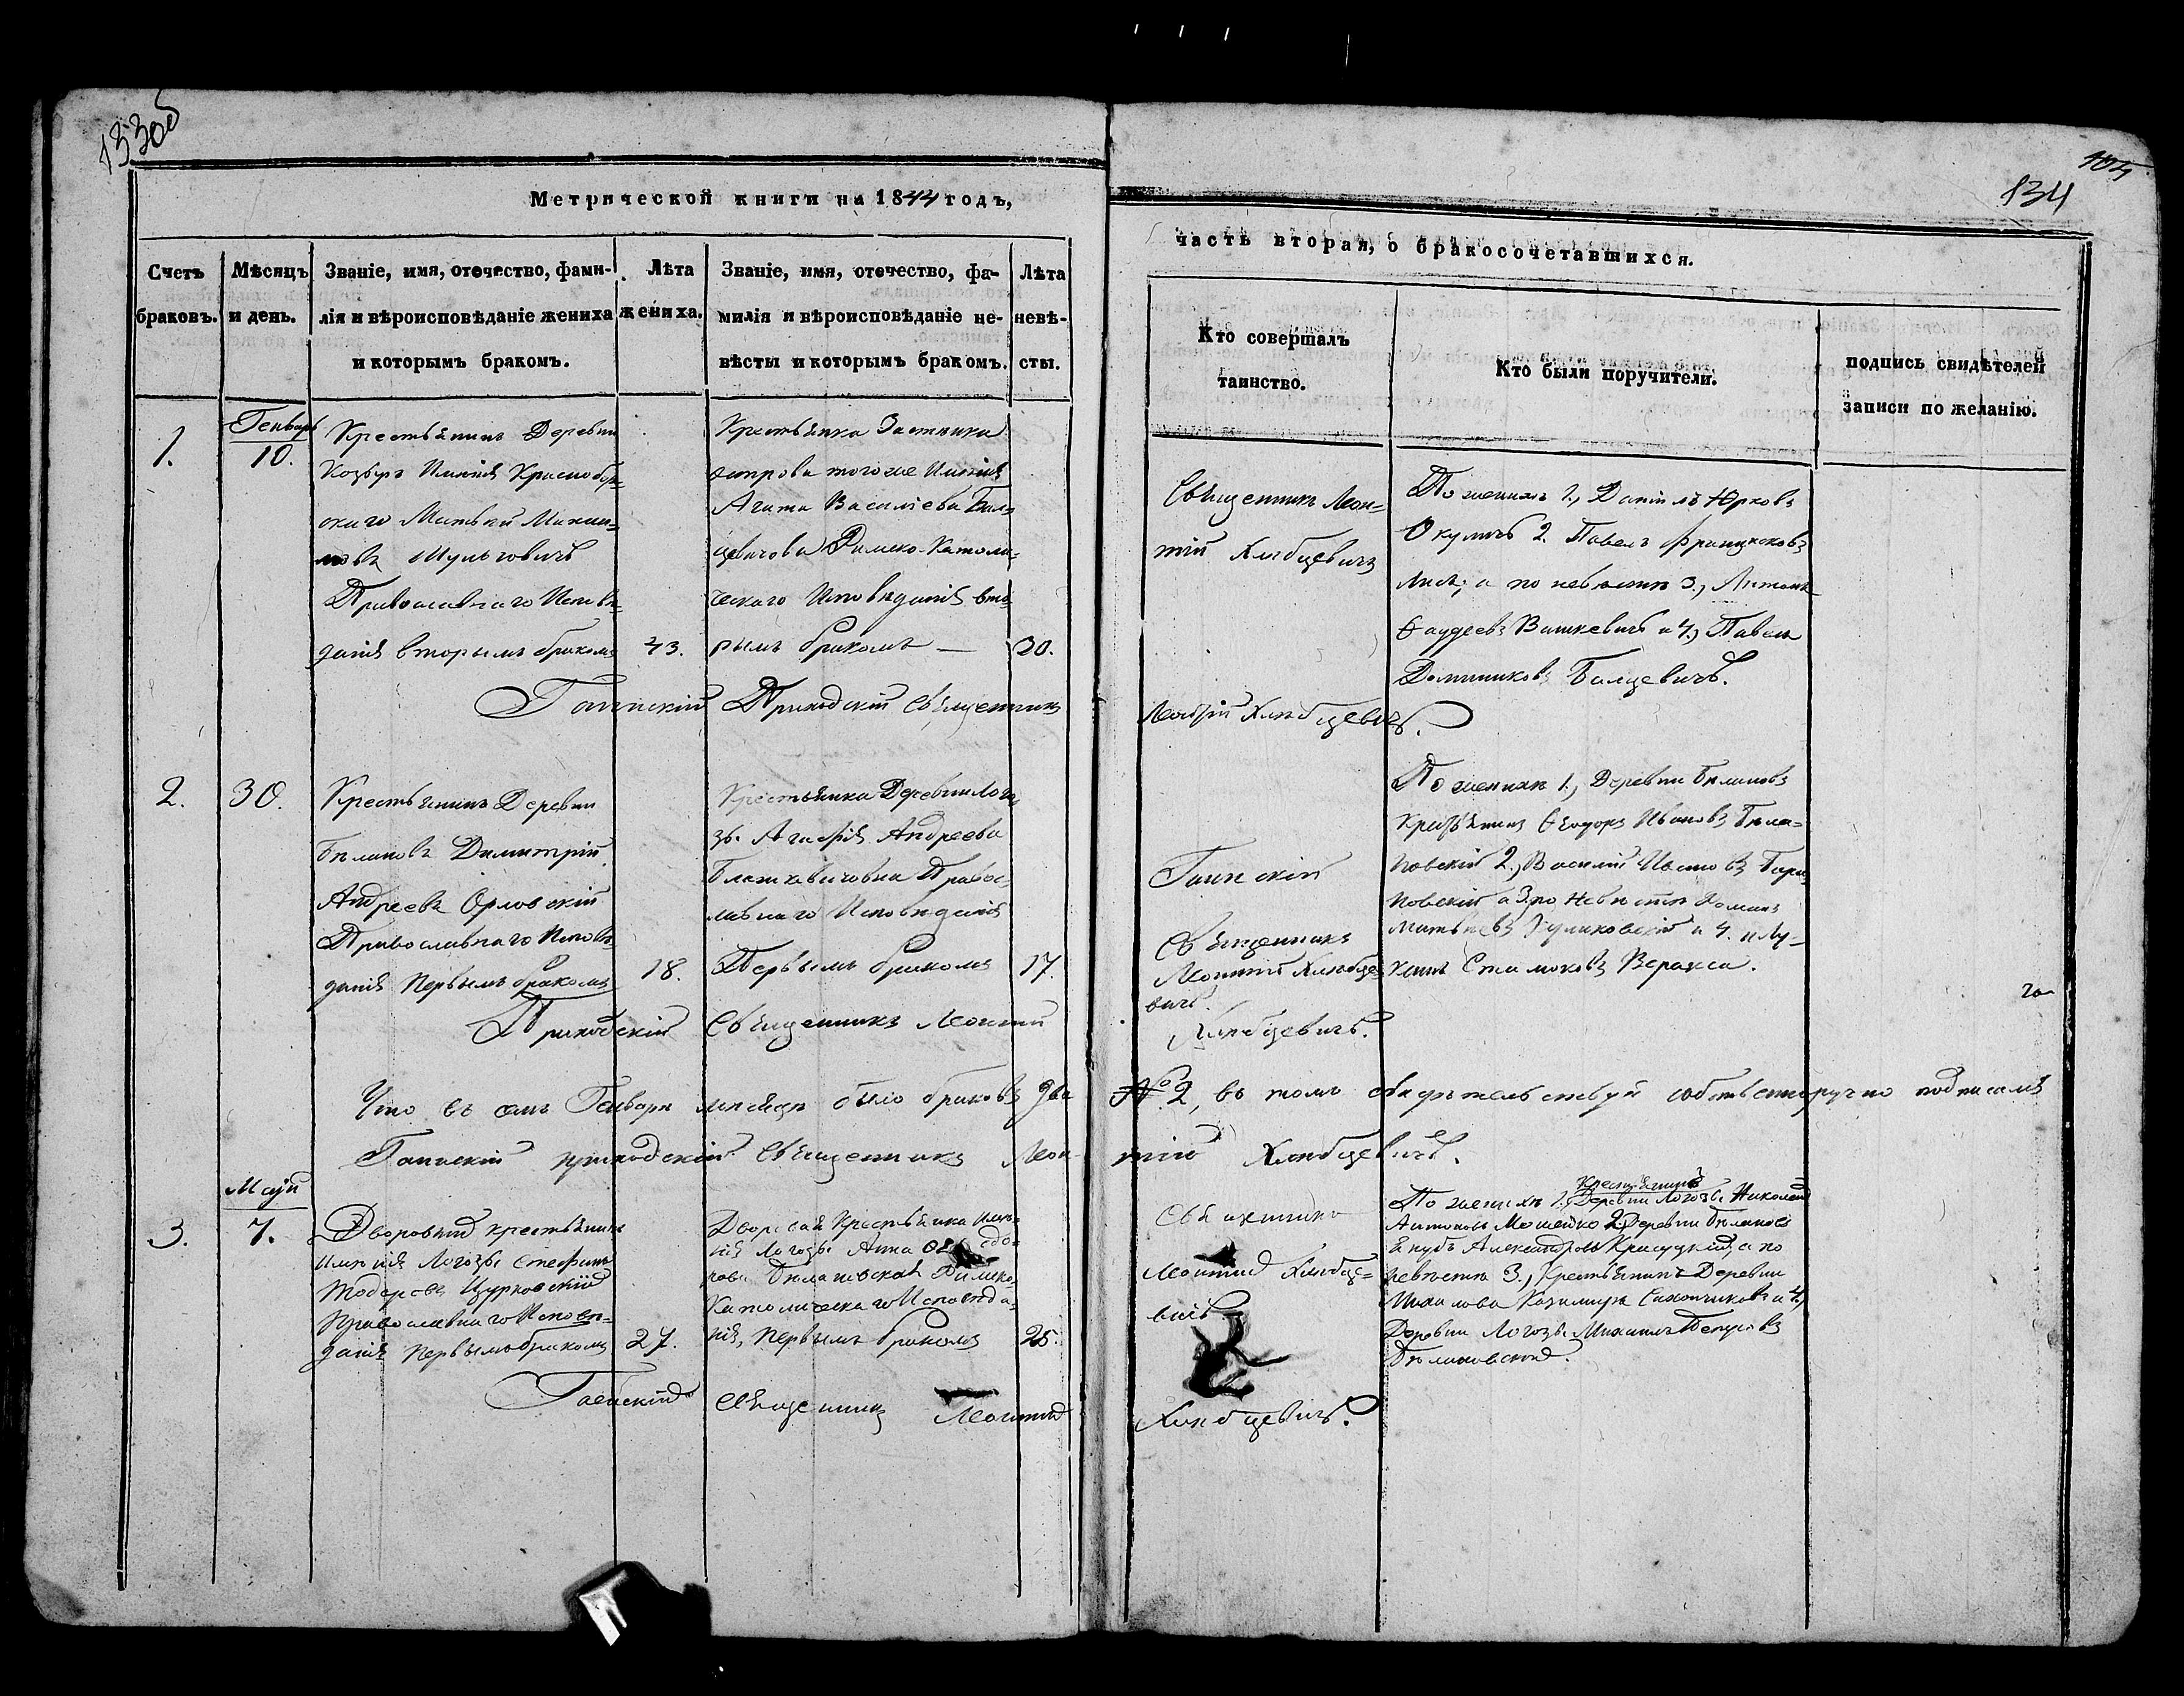 133об
104
134
Метрической книги на 1844 годъ,
часть вторая, о бракосочетавшихся.
Счетъ браковъ.
Мѣсяцъ и день.
Званіе, имя, отечество, фами-
лія и вѣроисповѣданіе жениха
и которымъ бракомъ.
Лѣта
жениха.
Званіе, имя, отечество, фа-
милія и вѣроисповѣданіе не-
вѣсты и которымъ бракомъ.
Лѣта
невѣ-
сты.
Кто совершалъ
таинство.
Кто были поручители.
подпись свидѣтелей
записи по желанію.
1.
Генварь
10.
Крестьянинъ Деревни
Имѣнія Краснобор-
скаго Матвѣй
Шульговичъ
Православнаго Исповѣ-
данія вторымъ бракомъ
43.
Крестьянка Застѣнка
острова тогоже Имѣнія
Агата Васильева Бал-
цевичова Римско-Католи-
ческаго Исповѣданія вто-
рымъ бракомъ —
30.
Священникъ Леон-
тій Хлѣбцевичъ
По женихѣ 1., Даніилъ Юрковъ
Окуличъ 2. Павелъ Францисковъ
а по невѣстѣ 3.,
Фаддеевъ Вашкевичъ и 4.) Павелъ
Доминиковъ Балцевичъ.
Гаинскій Приходскій Священникъ
Леонтій Хлѣбцевичъ.
2.
30.
Крестьянинъ Деревни
Бѣлановъ Димитрій
Андреевъ Орловскій
Православнаго Исповѣ-
данія Первымъ бракомъ
18.
Крестьянка Деревни Лого-
зы Агафія Андреева
Блажкевичовна Правос-
лавнаго Исповѣданія
Первымъ бракомъ
17.
Гаинскій
Священникъ
Леонтій Хлѣбце-
вичъ
По женихѣ 1., Деревни Бѣлановъ
Крестьянинъ Ѳеодоръ Ивановъ Бѣла-
новскій 2., Василій
новскій а 3 по Невѣстѣ Романъ
Матвѣевъ Куликовскій и 4. и Лу-
кашъ Веракса.
Приходскій Священникъ Леонтій
Хлѣбцевичъ.
Что въ семъ Генварѣ мѣсяцѣ было браковъ два № 2, въ томъ свидѣтельствуя собственноручно подписалъ
Гаинскій приходскій Священникъ Леон-
тій Хлѣбцевичъ.
3.
Маій
7.
Дворовый крестьянинъ
Имѣнія Логозы Стефанъ
Тодоровъ Цурковскій
Православнаго Исповѣ-
данія Первымъ бракомъ
27.
Дворовая Крестьянка Имѣ-
нія Логозы Анна
рова Бѣлановская Римско-
Католическаго Исповѣда-
нія, Первымъ бракомъ
25.
Священникъ
Леонтій Хлѣбце-
вичъ
По женихѣ 1., Крестьянинъ Деревни Логозы Николай
Антоновъ Мошейко 2., Деревни Бѣлановъ
Якубъ Александровъ а по
невѣстѣ 3., Крестьянинъ Деревни
Казимиръ и 4.)
Деревни Логозы Михаилъ Петровъ
Бѣлановской.
Гаинскій Священникъ Леонтій
Хлѣбцевичъ.